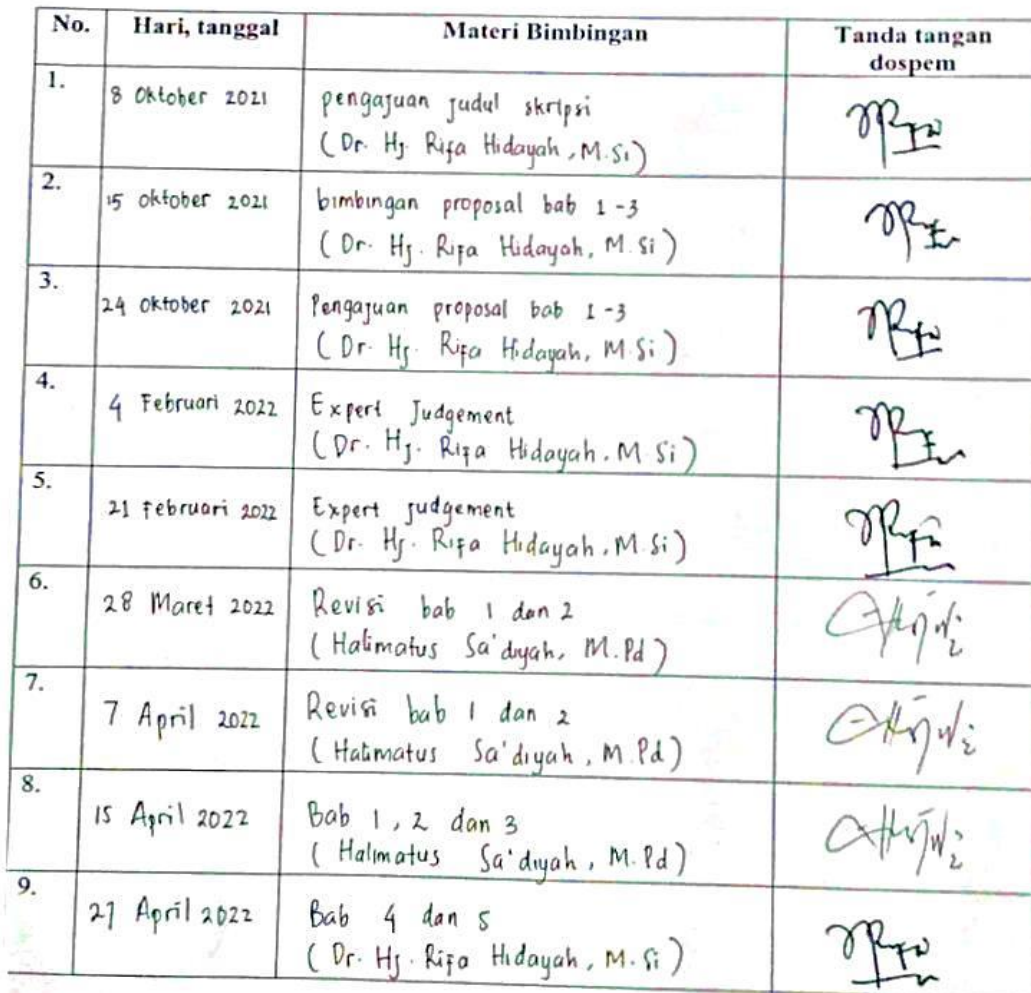 No. Hari, tanggal Materi Bimbingan Tanda tangan
dospem
1. 8 Oktober 2021 pengajuan judul skripsi
(Dr. Hj. Rifa Hidayah, M.Si)
2. 15 oktober 2021 bimbingan proposal bab 1-3
(Dr. Hj. Rifa Hidayah, M.Si)
3. 24 oktober 2021 Pengajuan proposal bab 1-3
(Dr. Hj. Rifa Hidayah, M.Si)
4. 4 Februari 2022 Expert Judgement
(Dr. Hj. Rifa Hidayah. M.Si)
5. 21 Februari 2022 Expert judgement
(Dr. Hj. Rifa Hidayah. M.Si)
6. 28 Maret 2022 Revisi bab 1 dan 2
(Halimatus Sa'diyah, M.Pd)
7. 7 April 2022 Revisi bab 1 dan 2
(Halimatus Sa'diyah, M.Pd)
8. 15 April 2022 Bab 1, 2 dan 3
(Halimatus Sa'diyah, M.Pd)
9. 27 April 2022 Bab 4 dan 5
(Dr. Hj. Rifa Hidayah, M.Si)